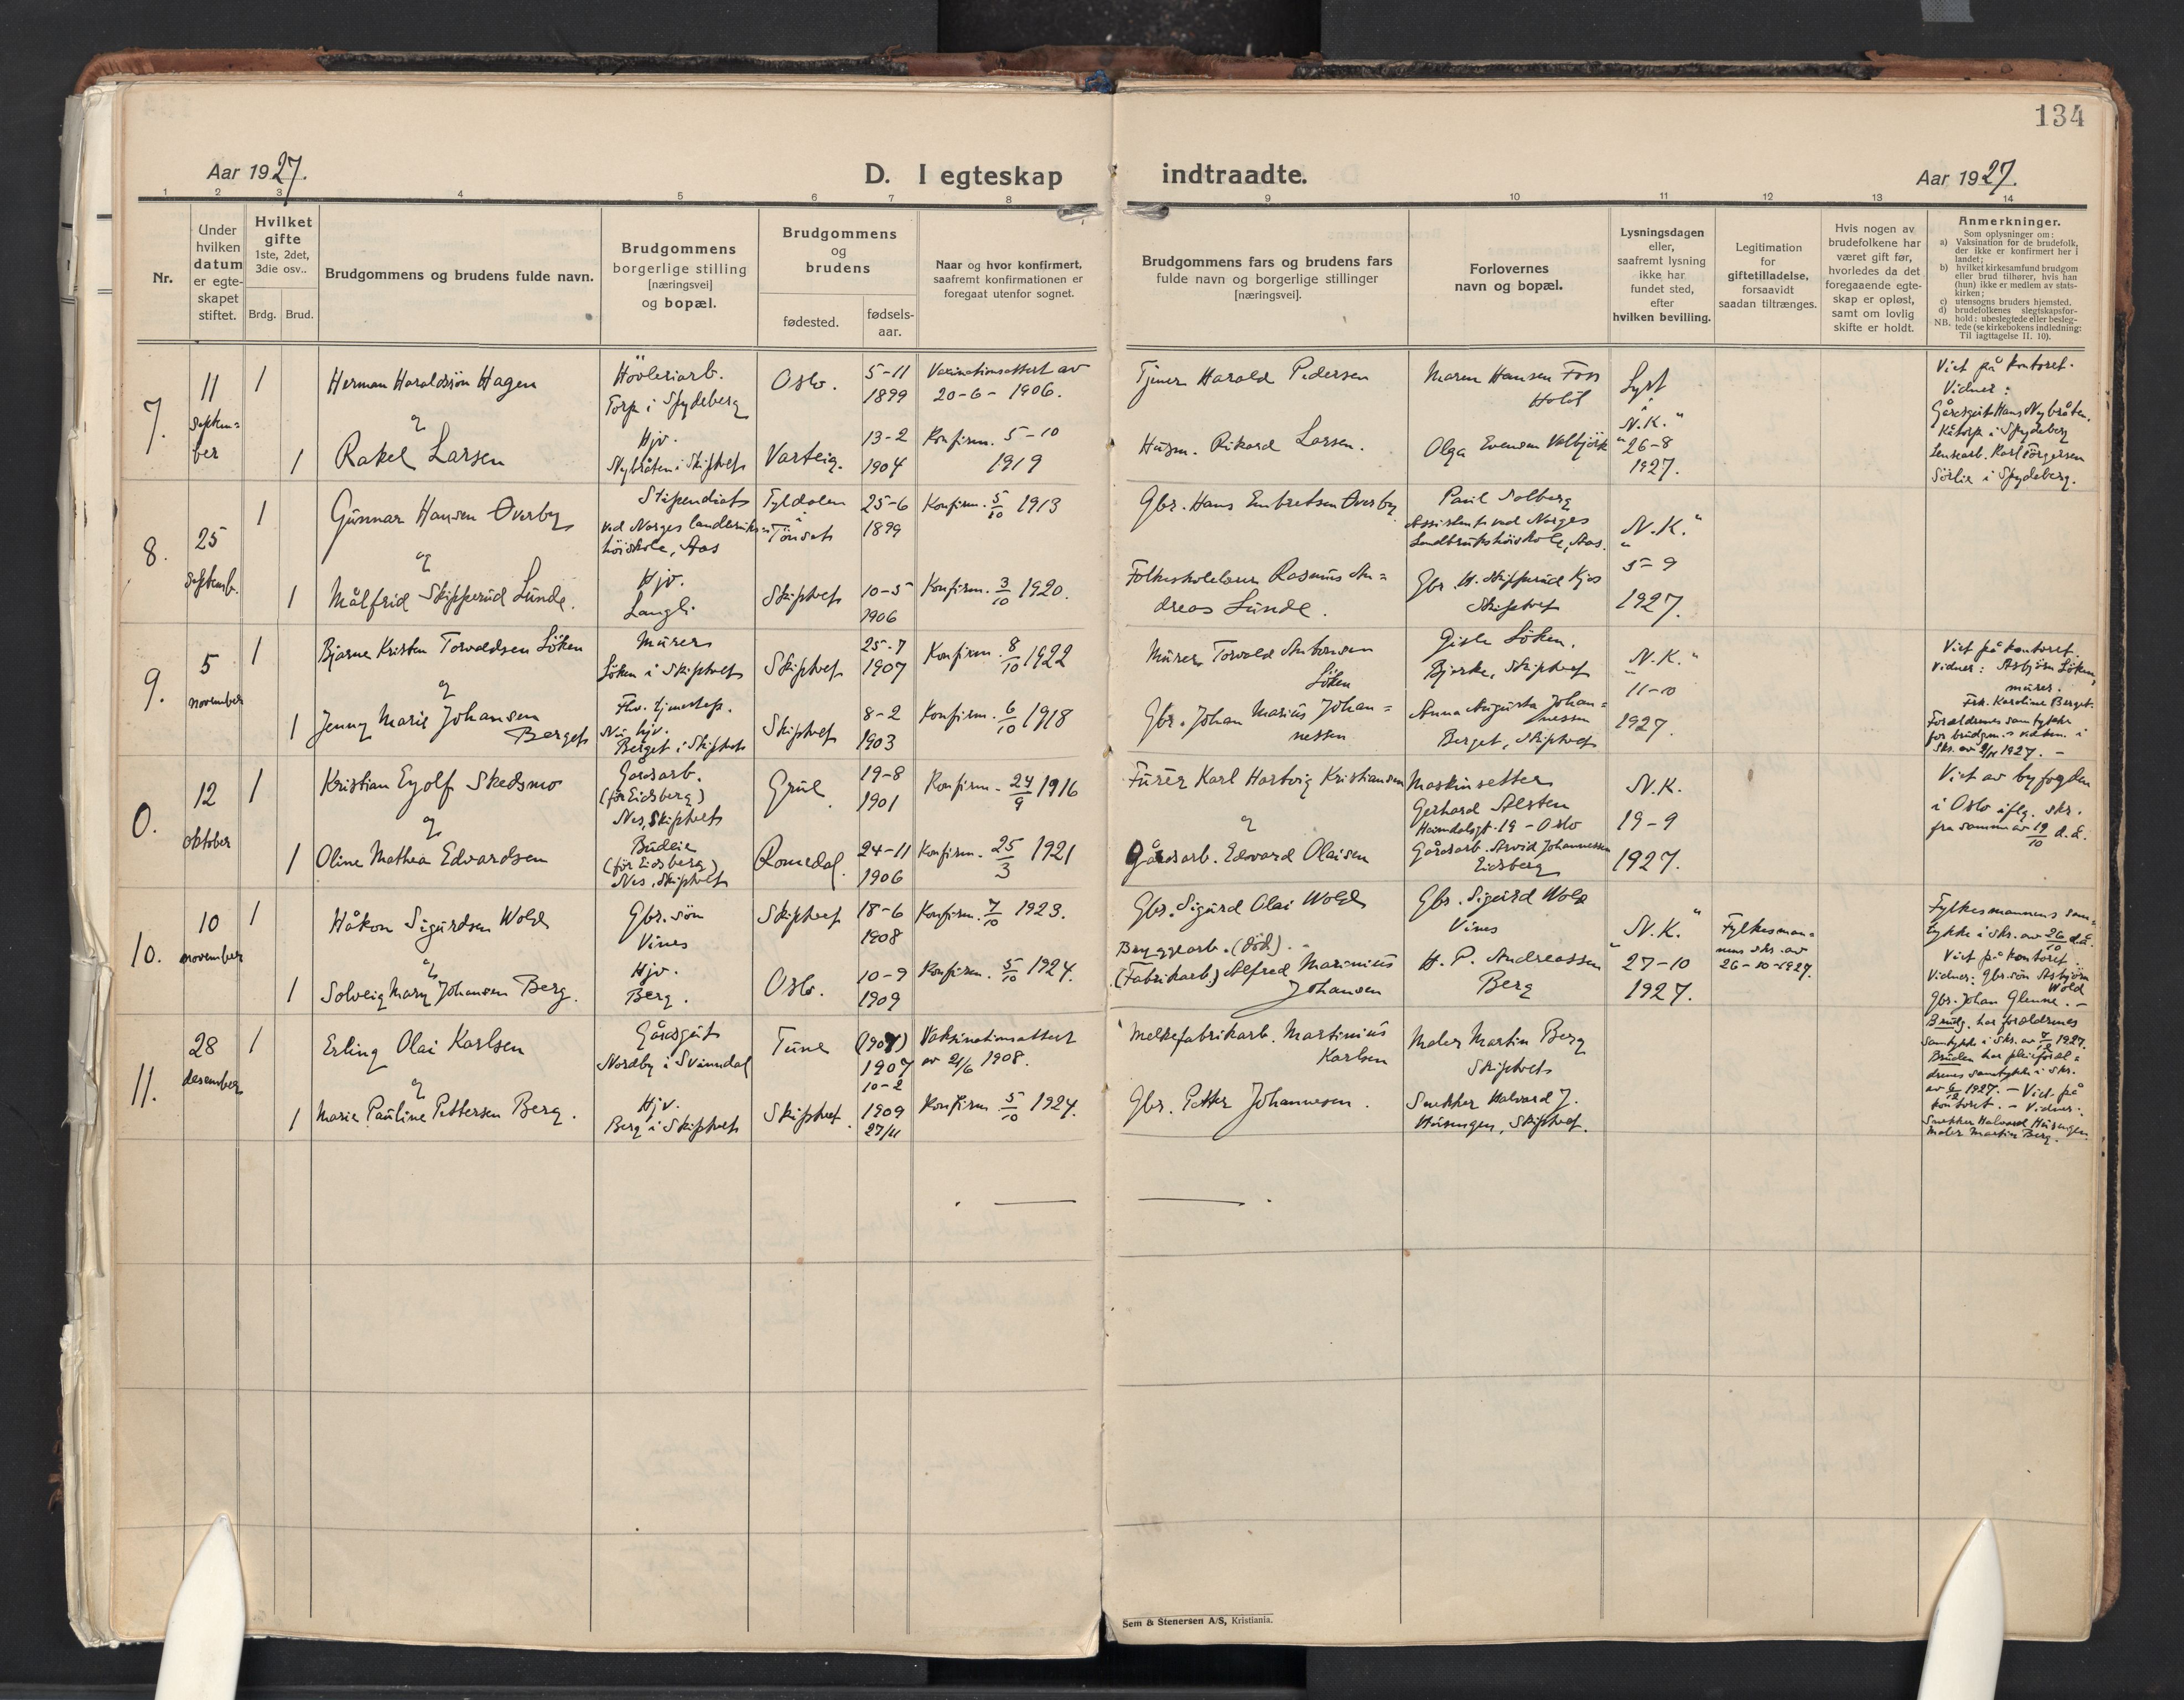 134
Aar 1927.
D. I egteskap
indtraadte.
Aar 1927.
1 2 3 4 5 6 7 8
9 10 11 12 13 14
Nr.
Under
hvilken
datum
er egte-
skapet
stiftet.
Hvilket
gifte
1ste, 2det,
3die osv..
Brdg. Brud.
Brudgommens og brudens fulde navn.
Brudgommens
borgerlige stilling
[næringsvei]
og bopæl.
Brudgommens
og
brudens
fødested.
fødsels-
aar.
Naar og hvor konfirmert,
saafremt konfirmationen er
foregaat utenfor sognet.
Brudgommens fars og brudens fars
fulde navn og borgerlige stillinger
[næringsvei].
Forlovernes
navn og bopæl.
Lysningsdagen
eller,
saafremt lysning
ikke har
fundet sted,
efter
hvilken bevilling.
Legitimation
for
giftetilladelse,
forsaavidt
saadan tiltrænges.
Hvis nogen av
brudefolkene har
været gift før,
hvorledes da det
foregaaende egte-
skap er opløst,
samt om lovlig
skifte er holdt.
Anmerkninger.
Som oplysninger om:
a) Vaksination for de brudefolk,
der ikke er konfirmert her i
landet;
b) hvilket kirkesamfund brudgom
eller brud tilhører, hvis han
(hun) ikke er medlem av stats-
kirken;
c) utensogns bruders hjemsted.
d) brudefolkenes slegtskapsfor-
hold: ubeslegtede eller besleg-
NB. tede (se kirkebokens indledning:
Til iagttagelse II. 10).
7.
11
septem=
ber
1
Herman Haraldssön Hagen
og
1
Rakel Larsen
Hövleriarb.
Torp i Spydeberg
Hjv.
Nybråten i Skiptvet
Oslo.
Varteig.
5-11
1899
13-2
1904
Vaxinationsattest av
20-6-1906.
Konfirm. 5-10
1919
Tjener Harald Pedersen
Husm. Rikard Larsen.
Maren Hansen Foss
Hobøl
Olga Evensen Valbjörk
Lyst
i
"N.K."
26-8
1927.
Viet på kontoret.
Vidner:
Gårdsgut Hans Nybråten,
i Spydeberg
Karl Törgersen
Sörlie i Spydeberg.
8.
25
septemb.
1
Gunnar Hansen Överby
og
1
Målfrid Skipperud Lunde.
Stipendiat
ved Norges landbruks-
höiskole, Aas
Hjv.
Langli
Tyldalen
i
Tönset
Skiptvet
25-6
1899
10-5
1906
Konfirm. 5/10 1913
Konfirm. 3/10 1920.
Gbr. Hans Embretsen Överby
Folkeskolelærer Rasmus An=
dreas Lunde.
Paul Solberg
Assistent ved Norges
Landbrukshöiskole, Aas.
Gbr. H. Skipperud Kjos
Skiptvet
"N.K."
5-9
1927.
9.
5
november
1
Bjarne Kristen Torvaldsen Löken
og
1
Jenny Marie Johansen
Berget
Murer
Löken i Skiptvet
Fhv. tjenestep.
Nu hjv.
Berget i Skiptvet
Skiptvet
Skiptvet
25-7
1907
8-2
1903
Konfirm. 8/10 1922
Konfirm. 6/10 1918
Murer Torvald Antonsen
Löken
Gbr. Johan Marius Johan=
nessen
Gisle Löken.
Bjerke, Skiptvet
Anna Augusta Johan=
nessen
Berget, Skiptvet
"N.K."
11-10
1927.
Viet på kontoret.
Vidner: Asbjörn Löken,
murer.
Frk. Karoline Berget.
Forældrenes samtykke
for brudgm.
skr. av 1927. -
0.
12
oktober
1
Kristian Eyolf Skedsmo
og
1
Oline Mathea Edvardsen
Gårdsarb.
(för Eidsberg)
Nes, Skiptvet
Budeie
(för Eidsberg)
Nes, Skiptvet
Grue
Romedal.
19-8
1901
24-11
1906
Konfirm. 24/9 1916
Konfirm. 25/3 1921
Furer Karl Hartvig Kristiansen
og
Gårdsarb. Edvard Olaisen
Maskinsetter
Gerhard Alsten
Heimdalsgt. 19 - Oslo
Gårdsarb. Arvid Johannessen
Eidsberg
N.K.
19-9
1927.
Viet av byfogden
i Oslo iflg. skr.
fra samme av 19/10 d.å.
10.
10
november
1
Håkon Sigurdsen Wold
og
1
Solveig Mary Johansen Berg.
Gbr. sön
Vines
Hjv.
Berg.
Skiptvet
Oslo.
18-6
1908
10-9
1909
Konfirm. 7/10 1923.
Konfirm. 5/10 1924.
Gbr. Sigurd Olai Wold
Bryggearb. (död). -
(Fabrikarb.) Alfred Marinius
Johansen
Gbr. Sigurd Wold
Vines
H. P. Andreassen
Berg
"N.K."
27-10
1927.
Fylkesman=
nens skr. av
26-10-1927.
Fylkesmannens sam=
tykke i skr. av 26/10 d.å.
Viet på kontoret.
Vidner: Gbr. sön Asbjörn
Wold
Gbr. Johan Glenne. -
11.
28
desember
1
Erling Olai Karlsen
og
1
Marie Pauline Pettersen Berg.
Gårdsgut
Nordby i Svinndal
Hjv.
Berg i Skiptvet
Tune
Skiptvet
1907
10-2
1909
27/11
Vaksinationsattest
av 21/6 1908.
Konfirm. 5/10 1924.
Melkefabrikarb. Martinius
Karlsen
Gbr. Petter Johannesen.
Maler Martin Berg
Skiptvet
Snekker Halvard J.
Husungen, Skiptvet.
Brudg. har forældrenes
samtykke i skr. av 7/12 1927.
Bruden har pleieforæl=
drenes samtykke i skr.
av 6/12 1927. - Viet på
kontoret. - Vidner:
Snekker Halvard Husungen
Maler Martin Berg.
Sem & Stenersen A/S, Kristiania.